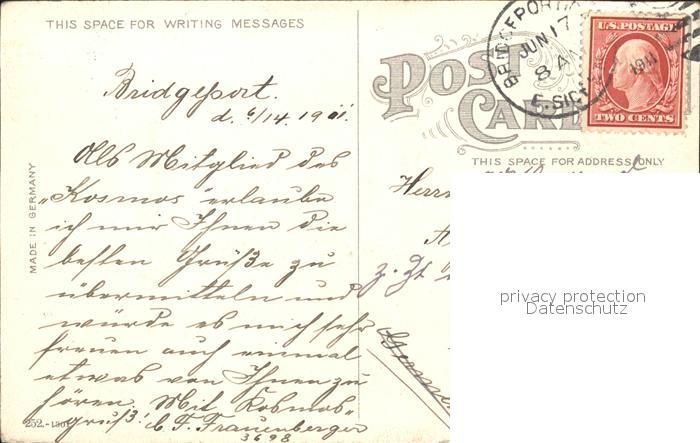 THIS SPACE FOR WRITING MESSAGES
Bridgeport.
d. 6/14. 1911.
Als Mitglied des
"Kosmos" erlaube
ich mir Ihnen die
besten Grüße zu
übermitteln und
würde es mich sehr
freuen auch einmal
etwas von Ihnen zu
hören. Mit Kosmos-
gruß! C. F. Frauenberger
3698
252.-
MADE IN GERMANY
POST CARD
BRIDGEPORT
JUN 17
8 A
1911
E. SIDE
U.S. POSTAGE
TWO CENTS
THIS SPACE FOR ADDRESS ONLY
Herrn
z. Zt.
privacy protection
Datenschutz